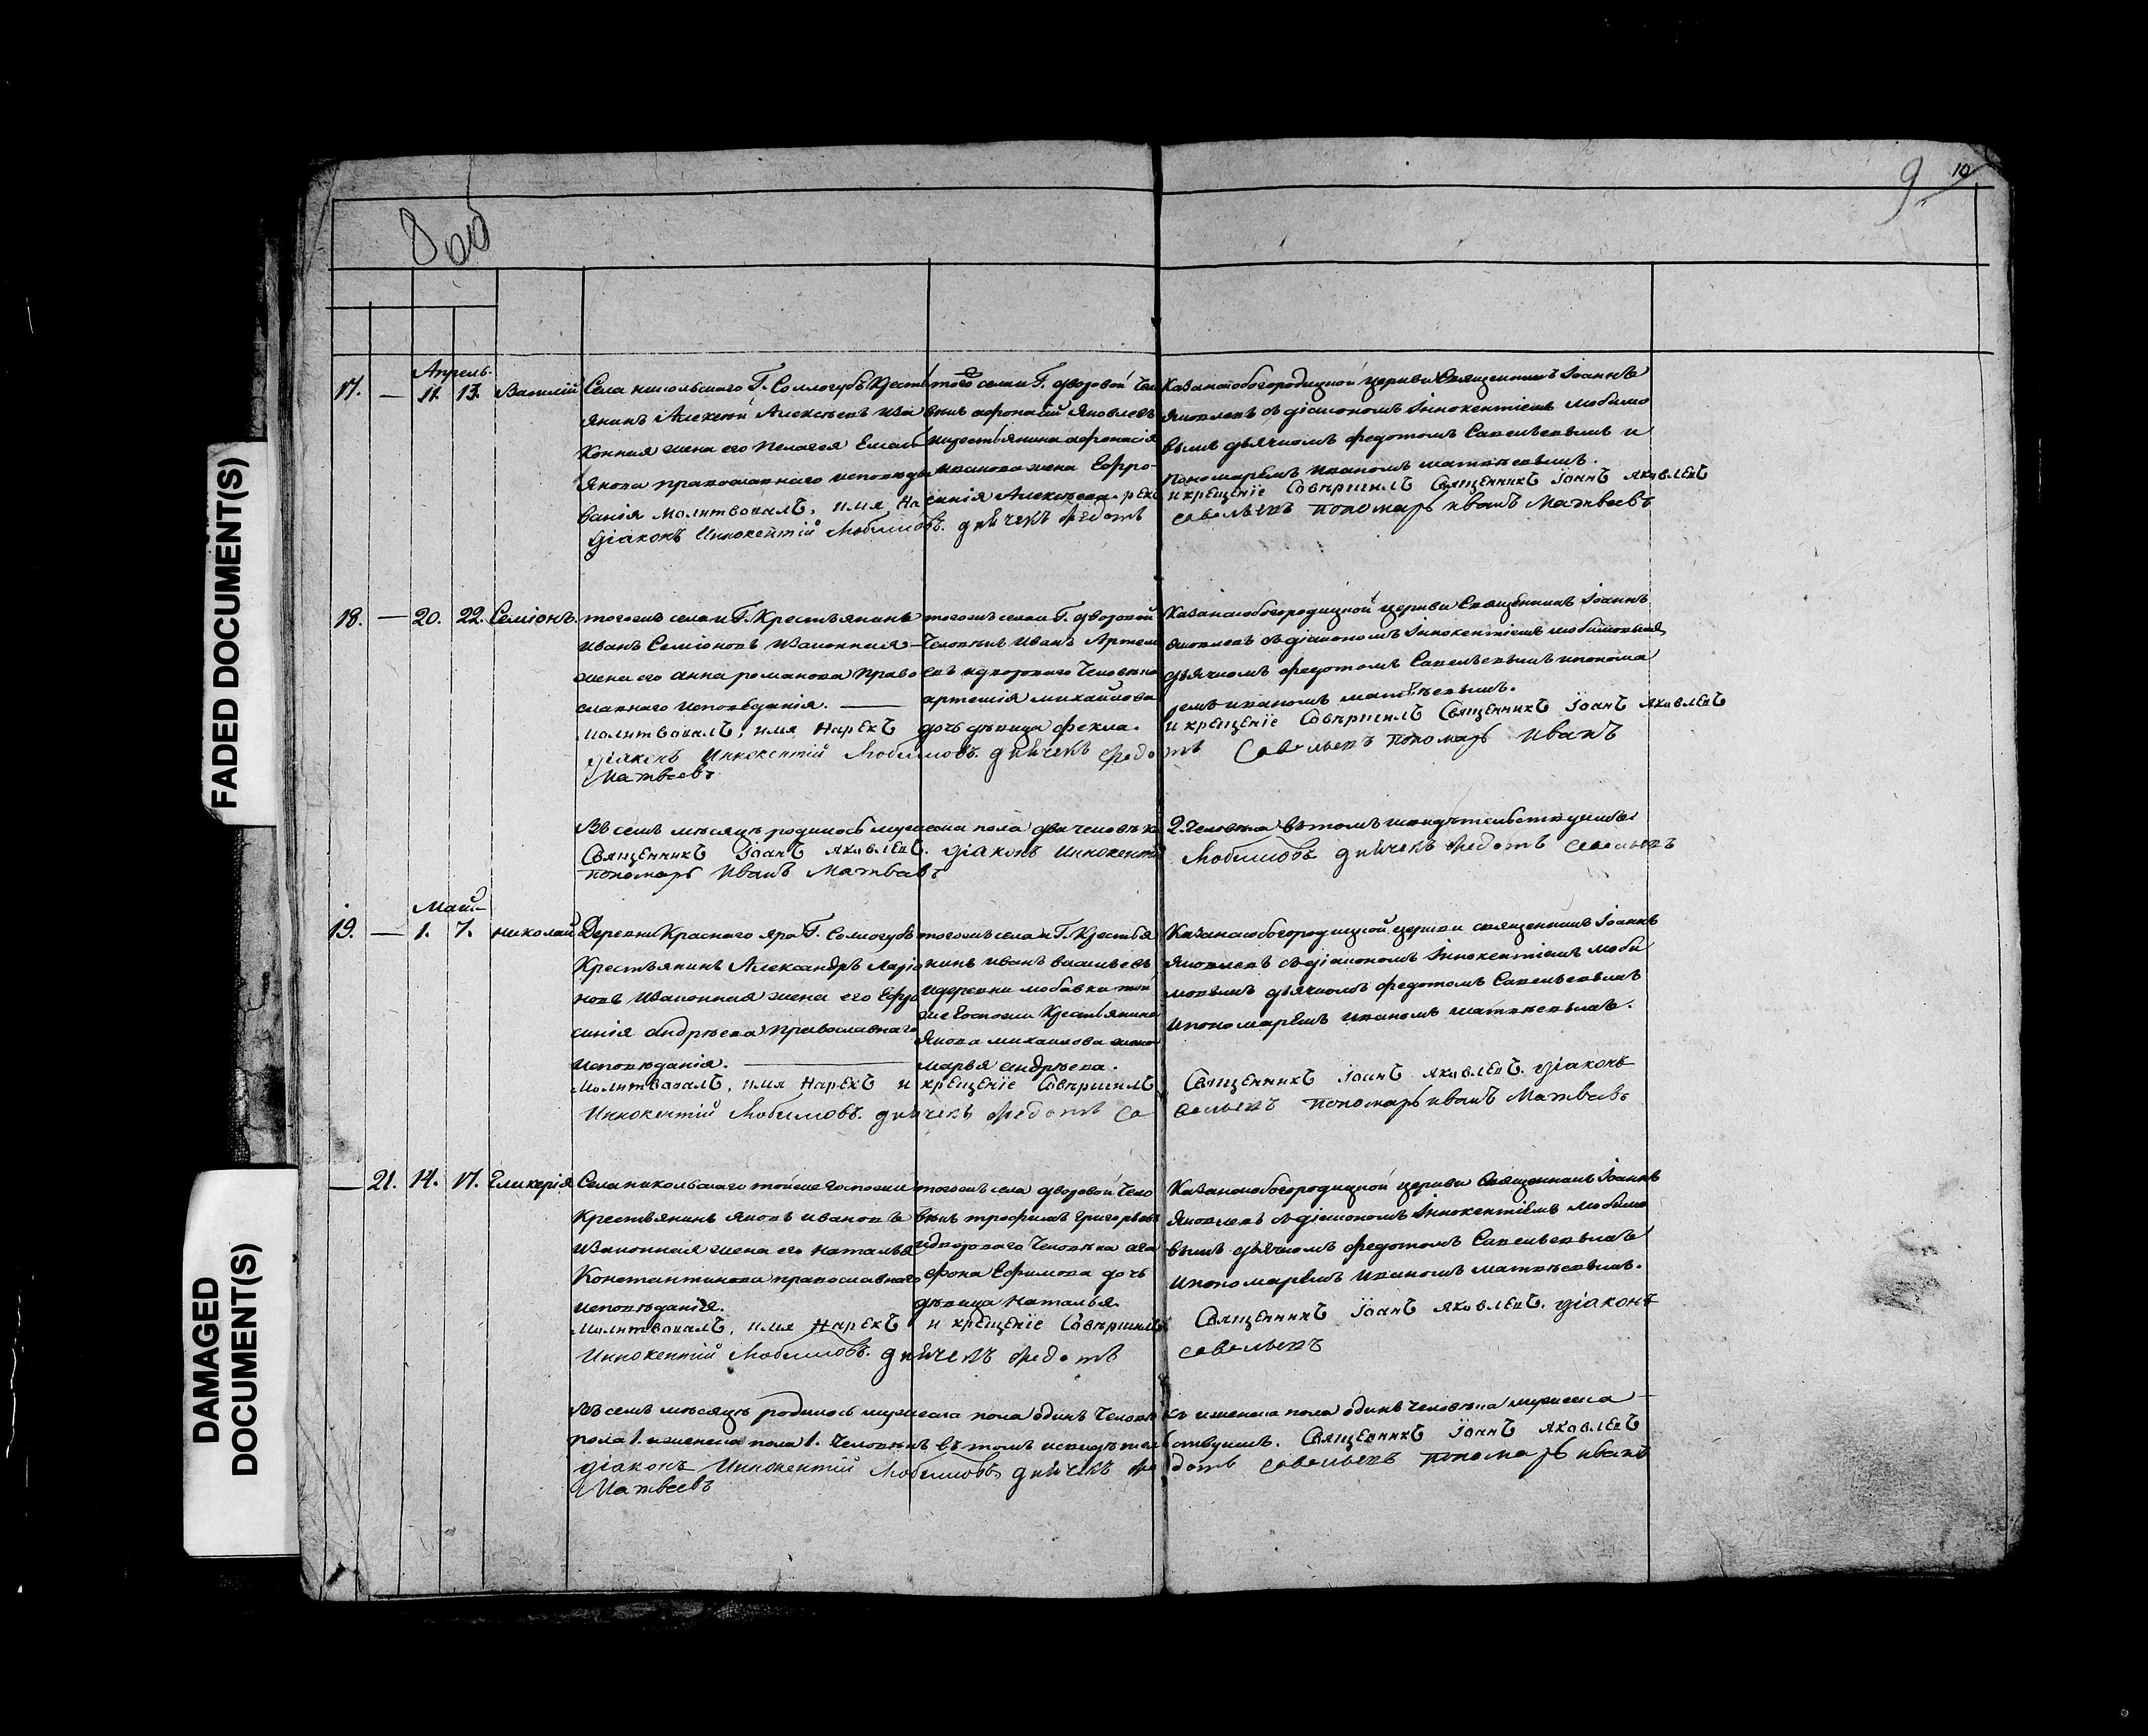 FADED DOCUMENT(S)
DAMAGED
DOCUMENT(S)
8 об
9 10
Апрель.
17. — 11. 13. Василій
Села никольскаго Г. Соллогубъ Кресть
янинъ Алексѣй Алексѣевъ иза
конная жена его Пелагея Емель
янова православнаго исповѣда
ванія молитвовалъ, имя на
діаконъ Иннокентій Любимовъ. дьячекъ Федотъ
того села и Г. дворовой Чел
вѣкъ афонасій Яковлевъ
икрестьянина афонасія
иванова жена Ефро-
синія Алексѣева. рекъ
Казанскобогородицкой церкви Священникъ Іоаннъ
Яковлевъ съ діакономъ Іннокентіемъ любимо
вымъ дьячкомъ федотомъ Савельевымъ и
пономаремъ иваномъ матвѣевымъ.
и крещеніе Совершилъ Священникъ Іоанъ яковлевъ
савельевъ пономарь иванъ Матвеевъ
18. — 20. 22. Семіонъ.
тогожъ села и Г. Крестьянинъ
иванъ Семіоновъ Изаконная
жена его анна романова право
славнаго исповѣданія. —
молитвовалъ, имя нарекъ
діаконъ Иннокентій Любимовъ. дьячекъ федо
Матвеевъ
тогожъ села и Г. дворовой
Человѣкъ иванъ Артемь
евъ идворового Человѣка
артемія михайлова
дочь дѣвица фекла.
Казанскобогородицкой церкви Священникъ Іоаннъ
яковлевъ съ діакономъ Іннокентіемъ любимовымъ
дьячкомъ федотомъ Савельевымъ ипонома
ремъ иваномъ матвѣевымъ.
и крещеніе Совершилъ Священникъ Іоанъ яковлевъ
тъ Савельевъ пономарь иванъ
Въ семъ мѣсяцѣ родилось мужеска пола два человѣка 2. Человѣка вътомъ
Священникъ Іоанъ яковлевъ. діаконъ Иннокентій Любимовъ дьячекъ федотъ савельевъ
пономарь иванъ Матвеевъ
Май.
19. — 1. 7. николай
Деревни Краснаго яра Г. Сологубъ
Крестьянинъ Александръ Ларіо
новъ Изаконная жена его Ефро
синія андрѣева Православнаго
исповѣданія. —
молитвовалъ, имя нарекъ и крещеніе Совершилъ
Иннокентій Любимовъ. дьячекъ федотъ са
тогожъ села и Г. Крестья
нинъ иванъ васильевъ
идеревни любавки той
же Госпожи Крестьянина
Якова михаилова жена
марья андрѣева.
Казанскобогородицкой церкви священникъ Іоаннъ
Яковлевъ съ діакономъ Іннокентіемъ люби
мовымъ дьячкомъ федотомъ Савельевымъ
ипономаремъ иваномъ матвѣевымъ.
Священникъ Іоанъ яковлевъ. діаконъ
вельевъ пономарь иванъ Матвеевъ
— 21. 14. 17. Гликерія
Села никольскаго тойже госпожи
Крестьянинъ яковъ ивановъ
Изаконная жена его наталья
Константинова православнаго
исповѣданія.
молитвовалъ, имя нарекъ и крещеніе Совершилъ
Иннокентій Любимовъ. дьячекъ федотъ
тогожъ села дворовой Чело
вѣкъ трофимъ григорьевъ
идворового Человѣка ага
фона Ефимова дочь
дѣвица наталья.
Казанскобогородицкой церкви Священникъ Іоаннъ
Яковлевъ съ діакономъ Іннокентіемъ любимо
вымъ дьячкомъ федотомъ Савельевымъ
ипономаремъ иваномъ матвѣевымъ.
Священникъ Іоанъ яковлевъ. діаконъ
савельевъ
Въ семъ мѣсяцѣ родилось мужеска пола одинъ Человѣкъ иженска пола одинъ Человѣкъ мужеска
пола 1. иженска пола 1. Человѣкъ вътомъ исвидѣтельствуемъ. Священникъ Іоанъ яковлевъ
діаконъ Иннокентій Любимовъ дьячекъ федотъ савельевъ пономарь иванъ
Матвеевъ